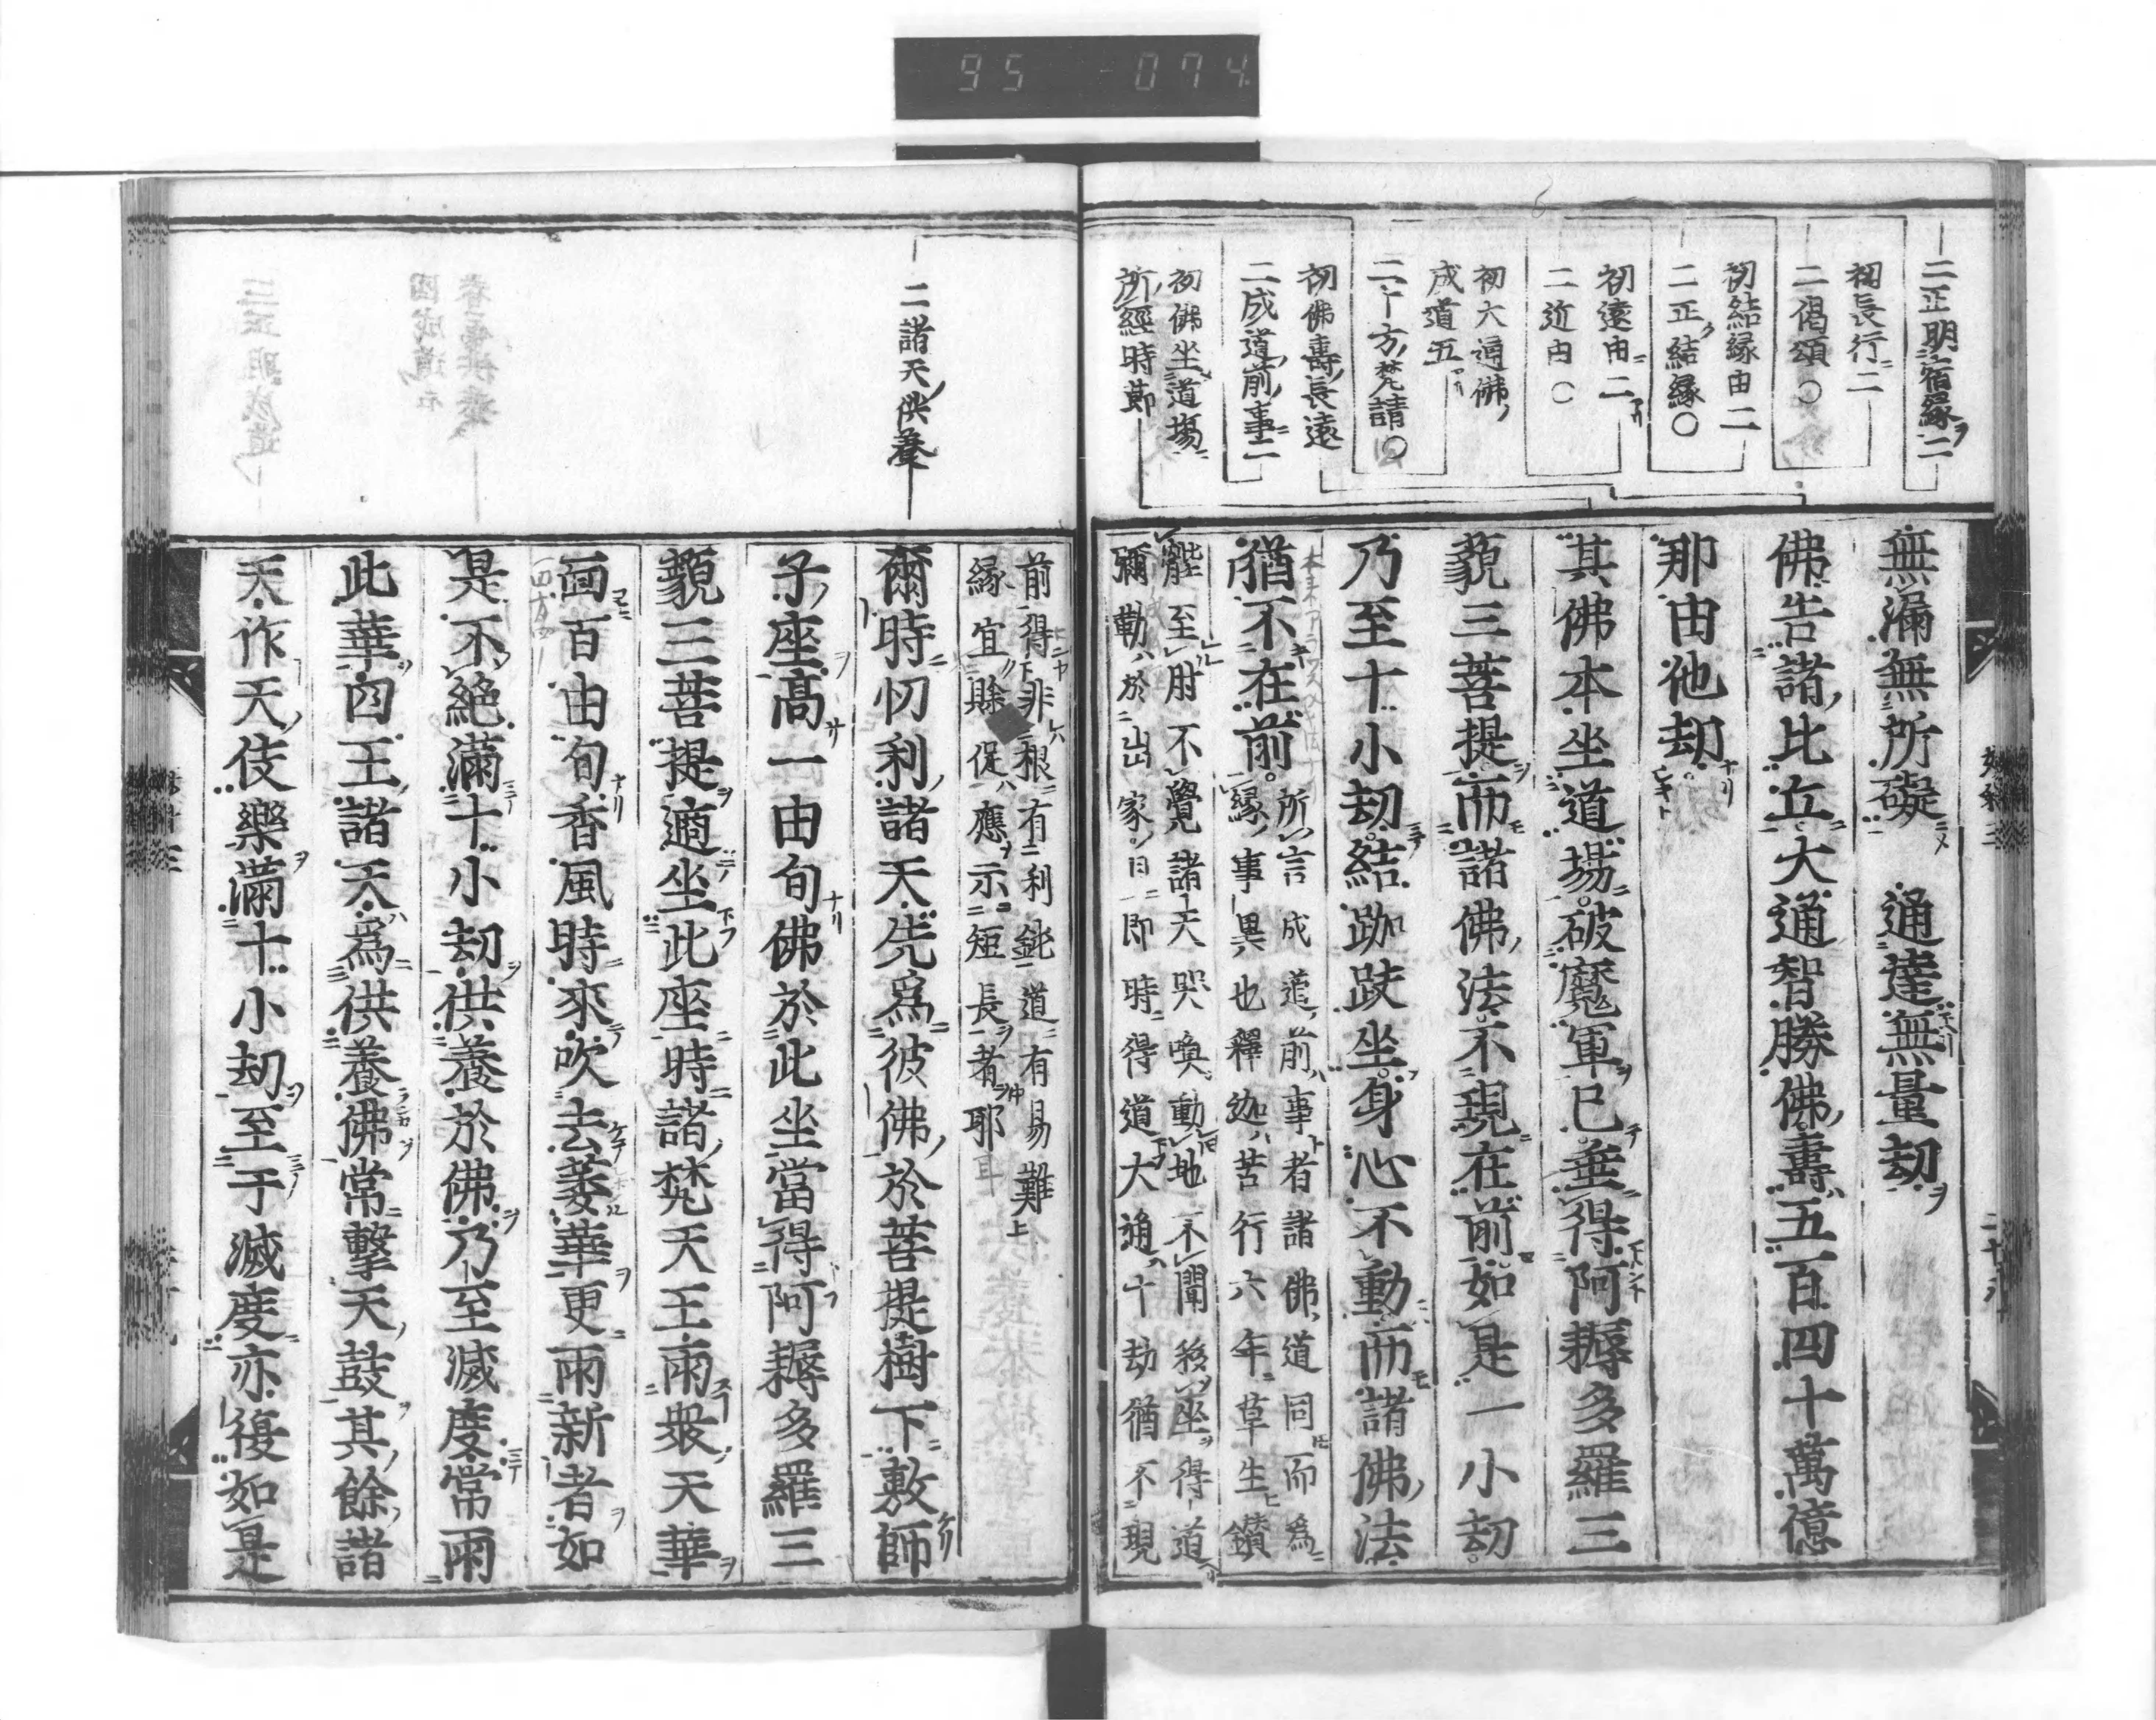 95 - 074
二正明宿緣二
初長行二
二偈頌〇
初結縁由二
二正結縁〇
初遠由二
二近由〇
初大通佛
成道五
二十方梵請〇
初佛壽長遠
二成道前事二
初佛坐道場
所經時節
無漏無所礙　通達無量劫
佛告諸比丘大通智勝佛壽五百四十萬億
那由他劫
其佛本坐道場破魔軍已垂得阿耨多羅三
藐三菩提而諸佛法不現在前如是一小劫
乃至十小劫結跏趺坐身心不動而諸佛法
猶不在前。所言成道前事者諸佛道同而爲
緣事異也釋迦苦行六年草生攢
髀至肘不覺諸天哭喚動地不聞移座得道
彌勒於出家日即時得道大通十劫猶不現
二諸天供養
前得非根有利鈍道有易難
緣宜賒促應示短長者耶
爾時忉利諸天先爲彼佛於菩提樹下敷師
子座高一由旬佛於此坐當得阿耨多羅三
藐三菩提適坐此座時諸梵天王雨衆天華
面百由旬香風時來吹去萎華更雨新者如
是不絕滿十小劫供養於佛乃至滅度常雨
此華四王諸天爲供養佛常擊天鼓其餘諸
天作天伎樂滿十小劫至于滅度亦復如是